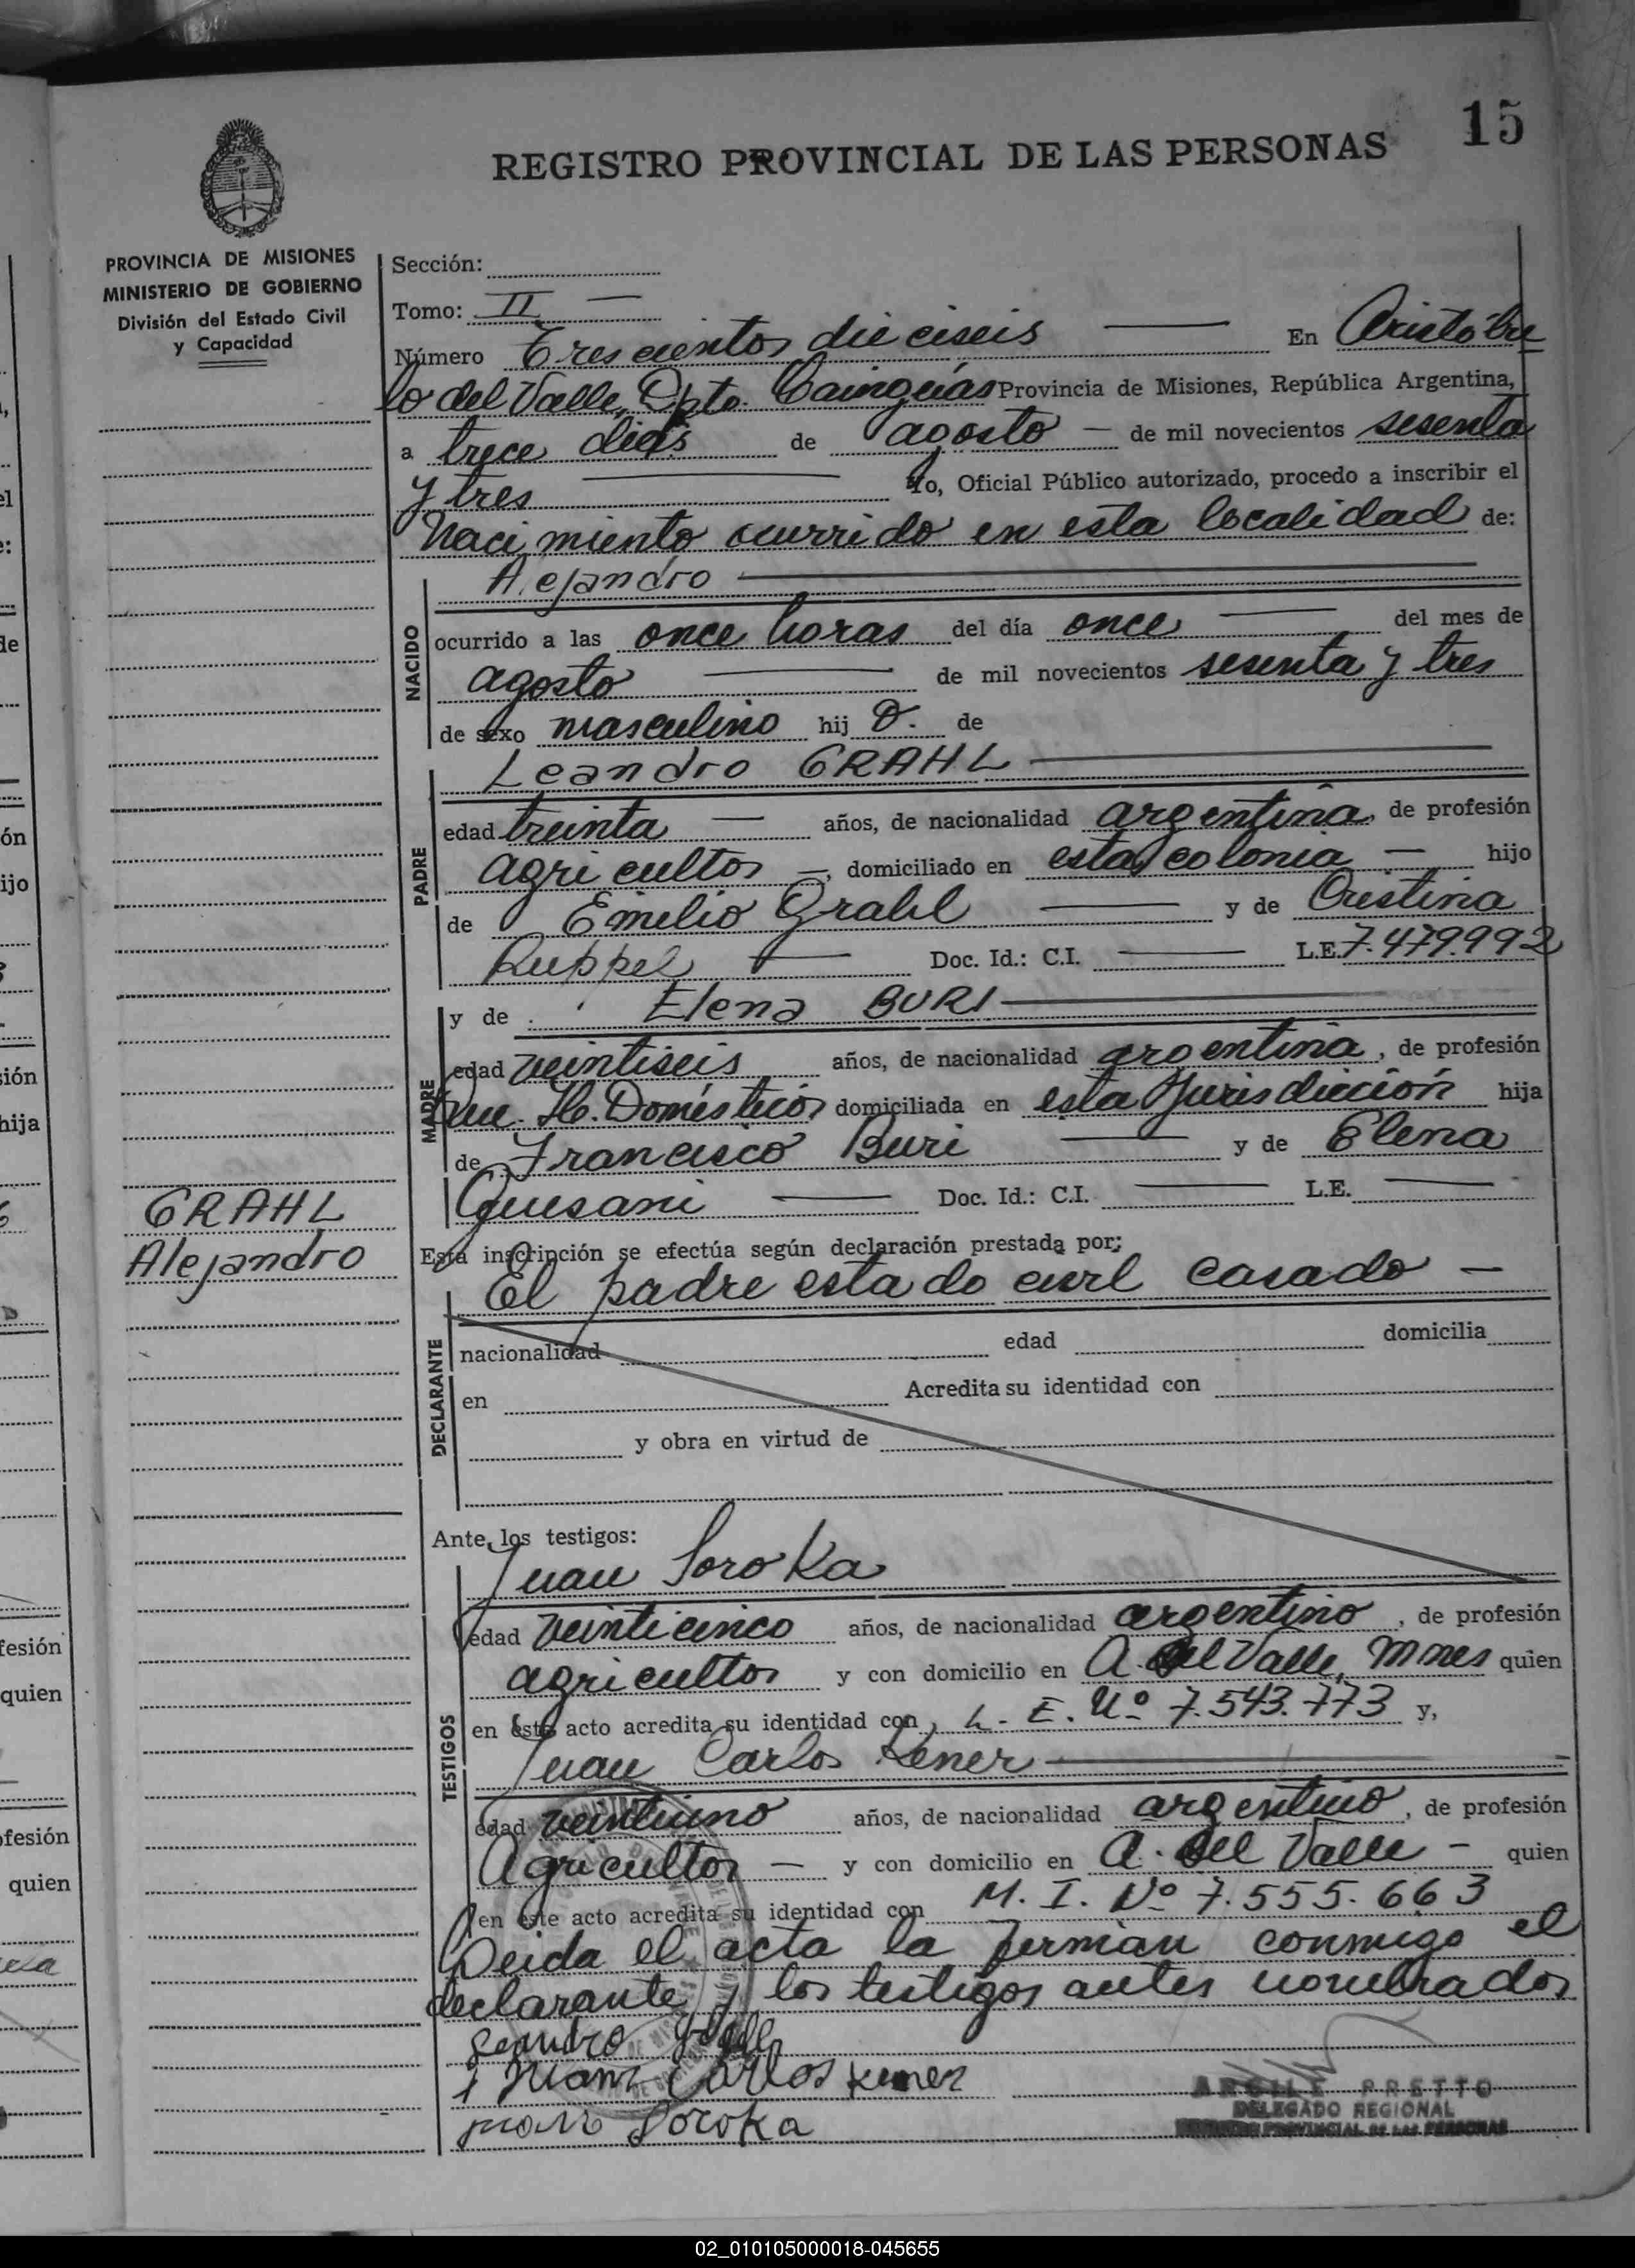 15
REGISTRO PROVINCIAL DE LAS PERSONAS
PROVINCIA DE MISIONES
MINISTERIO DE GOBIERNO
División del Estado Civil
y Capacidad
Sección:
Tomo: II
Número Trescientos dieciseis En Aristóbu
lo del Valle, Dpto. Cainguás Provincia de Misiones, República Argentina,
a trece dias de agosto de mil novecientos sesenta
y tres Yo, Oficial Público autorizado, procedo a inscribir el
Nacimiento ocurrido en esta localidad de:
NACIDO
Alejandro
ocurrido a las once horas del día once del mes de
agosto de mil novecientos sesenta y tres
de sexo masculino hij o. de
PADRE
Leandro GRAHL
edad treinta años, de nacionalidad argentina, de profesión
agricultor, domiciliado en esta colonia hijo
de Emilio Grahl y de Cristina
Ruppel Doc. Id.: C.I. L.E. 7.479.992
MADRE
y de Elena BURI
edad veintiseis años, de nacionalidad argentina, de profesión
Que. H. Domésticos domiciliada en esta Jurisdicción hija
de Francisco Buri y de Elena
Quesani Doc. Id.: C.I. L.E.
GRAHL
Alejandro
Esta inscripción se efectúa según declaración prestada por:
El padre estado civil casado
DECLARANTE
nacionalidad edad domicilia
en Acredita su identidad con
y obra en virtud de
Ante los testigos:
TESTIGOS
Juan Soroka
edad veinticinco años, de nacionalidad argentino, de profesión
agricultor y con domicilio en A. del Valle, Mnes quien
en este acto acredita su identidad con L. E. Nº 7.543.773 y,
Juan Carlos Kener
edad veintiuno años, de nacionalidad argentino, de profesión
Agricultor y con domicilio en A. del Valle quien
en este acto acredita su identidad con M. I. Nº 7.555.663
Leida el acta la firman conmigo el
declarante y los testigos antes nombrados
Leandro Grahl
Juan Carlos Kener
Juan Soroka
PRETTO
DELEGADO REGIONAL
PROVINCIAL DE LAS PERSONAS
02_010105000018-045655